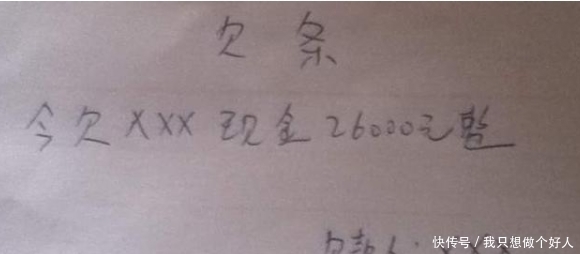 欠条
今欠XXX现金26000元整
快传号/我只想做个好人